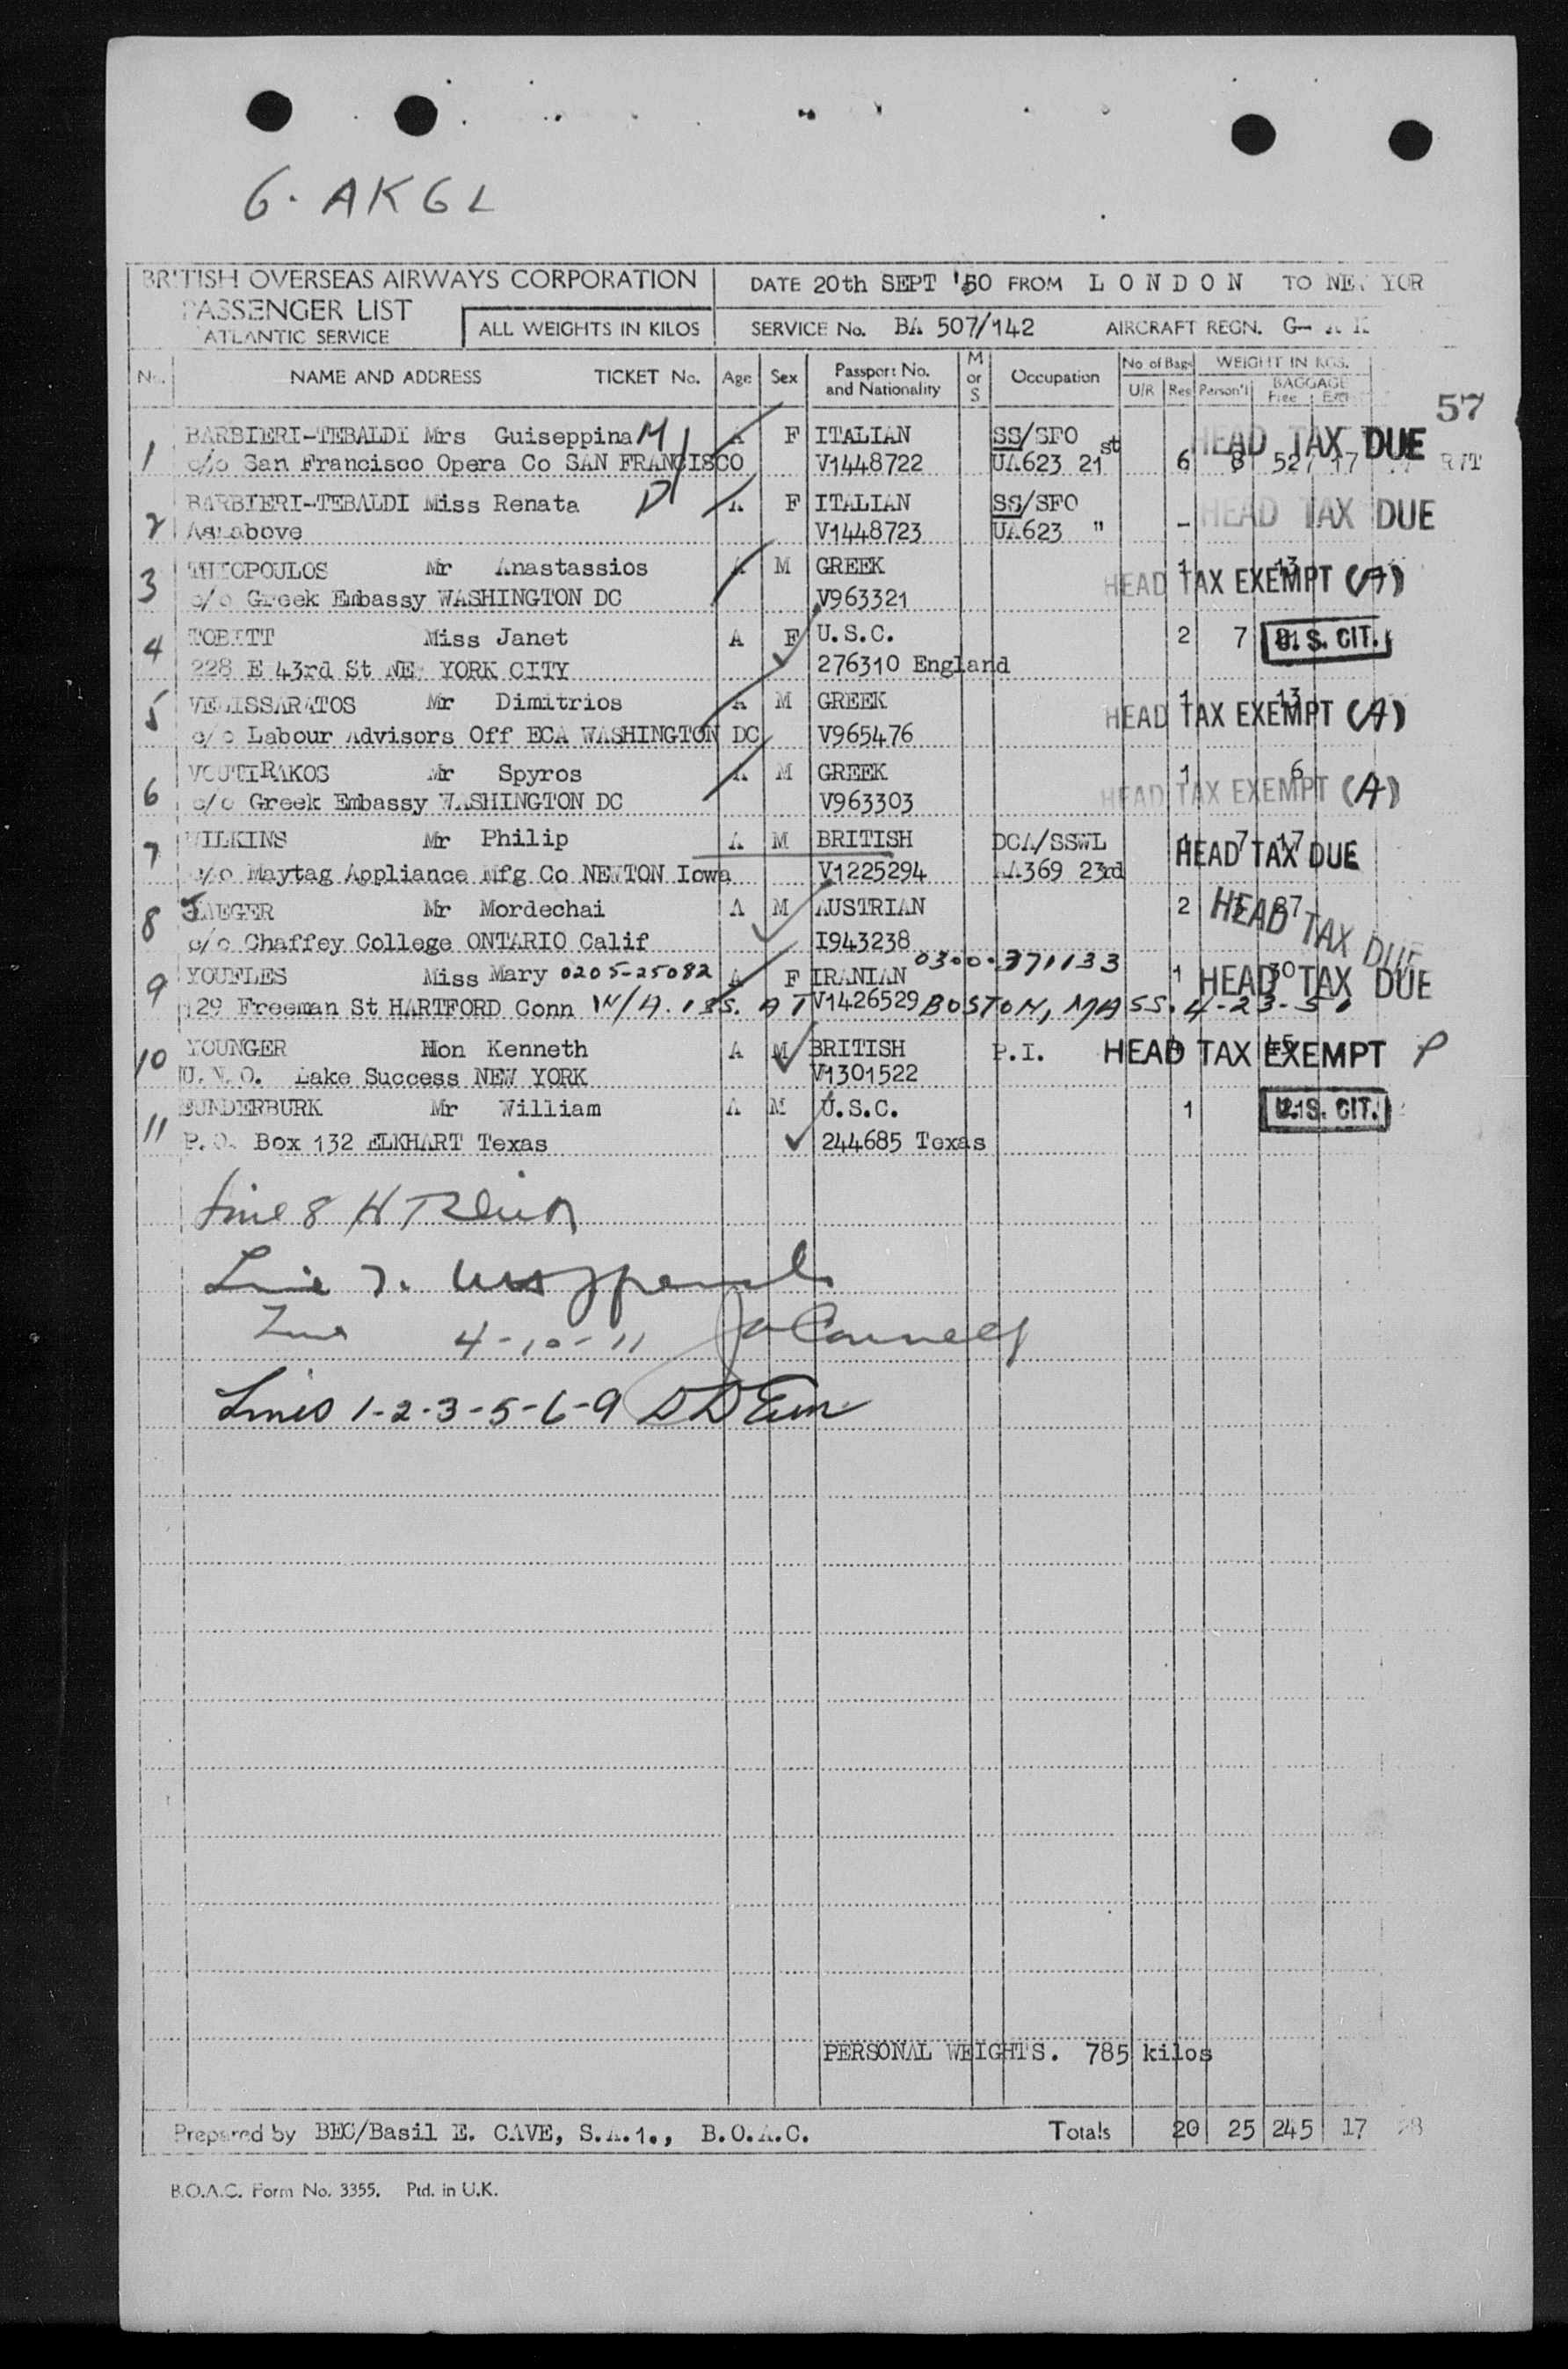 G. AKGL
BRITISH OVERSEAS AIRWAYS CORPORATION
PASSENGER LIST
ATLANTIC SERVICE
ALL WEIGHTS IN KILOS
DATE 20th SEPT '50 FROM L O N D O N TO NEW YOR
SERVICE No. BA 507/142 AIRCRAFT REGN. G- A K
No. NAME AND ADDRESS TICKET No. Age Sex Passport No. and Nationality M or S Occupation No of Bags U/R Reg WEIGHT IN KGS. Person'l BAGGAGE Free
57
1 BARBIERI-TEBALDI Mrs Guiseppina M A F ITALIAN SS/SFO HEAD TAX DUE
c/o San Francisco Opera Co SAN FRANCISCO V1448722 UA623 21st 6 8 52 17 R/T
2 BARBIERI-TEBALDI Miss Renata D A F ITALIAN SS/SFO HEAD TAX DUE
As above V1448723 UA623 " -
3 Mr Anastassios A M GREEK 1 13 HEAD TAX EXEMPT (A)
c/o Greek Embassy WASHINGTON DC V963321
4 TOBITT Miss Janet A F U.S.C. 2 7 U.S. CIT.
228 E 43rd St NEW YORK CITY 276310 England
5 VELISSARATOS Mr Dimitrios A M GREEK 1 13 HEAD TAX EXEMPT (A)
c/o Labour Advisors Off ECA WASHINGTON DC V965476
6 VOUTIRAKOS Mr Spyros A M GREEK 1 6 HEAD TAX EXEMPT (A)
c/o Greek Embassy WASHINGTON DC V963303
7 WILKINS Mr Philip A M BRITISH DCA/SSWL 7 17 HEAD TAX DUE
c/o Maytag Appliance Mfg Co NEWTON Iowa V1225294 AA369 23rd
8 JAEGER Mr Mordechai A M AUSTRIAN 2 HEAD TAX DUE
c/o Chaffey College ONTARIO Calif I943238
9 YOUFLES Miss Mary 0205-25082 A F IRANIAN 0300-371133 1 30 HEAD TAX DUE
129 Freeman St HARTFORD Conn W/A. ISS. AT V1426529 BOSTON, MASS. 4-23-50
10 YOUNGER Hon Kenneth A M BRITISH P.I. HEAD TAX EXEMPT P
U.N.O. Lake Success NEW YORK V1301522
11 FUNDERBURK Mr William A M U.S.C. 1 U.S. CIT.
P.O. Box 132 ELKHART Texas 244685 Texas
Line 8
Line 7.
Line 4-10-11
Lines 1-2-3-5-6-9
PERSONAL WEIGHTS. 785 kilos
Prepared by BEC/Basil E. CAVE, S.A.1., B.O.A.C. Totals 20 25 245 17
B.O.A.C. Form No. 3355. Ptd. in U.K.